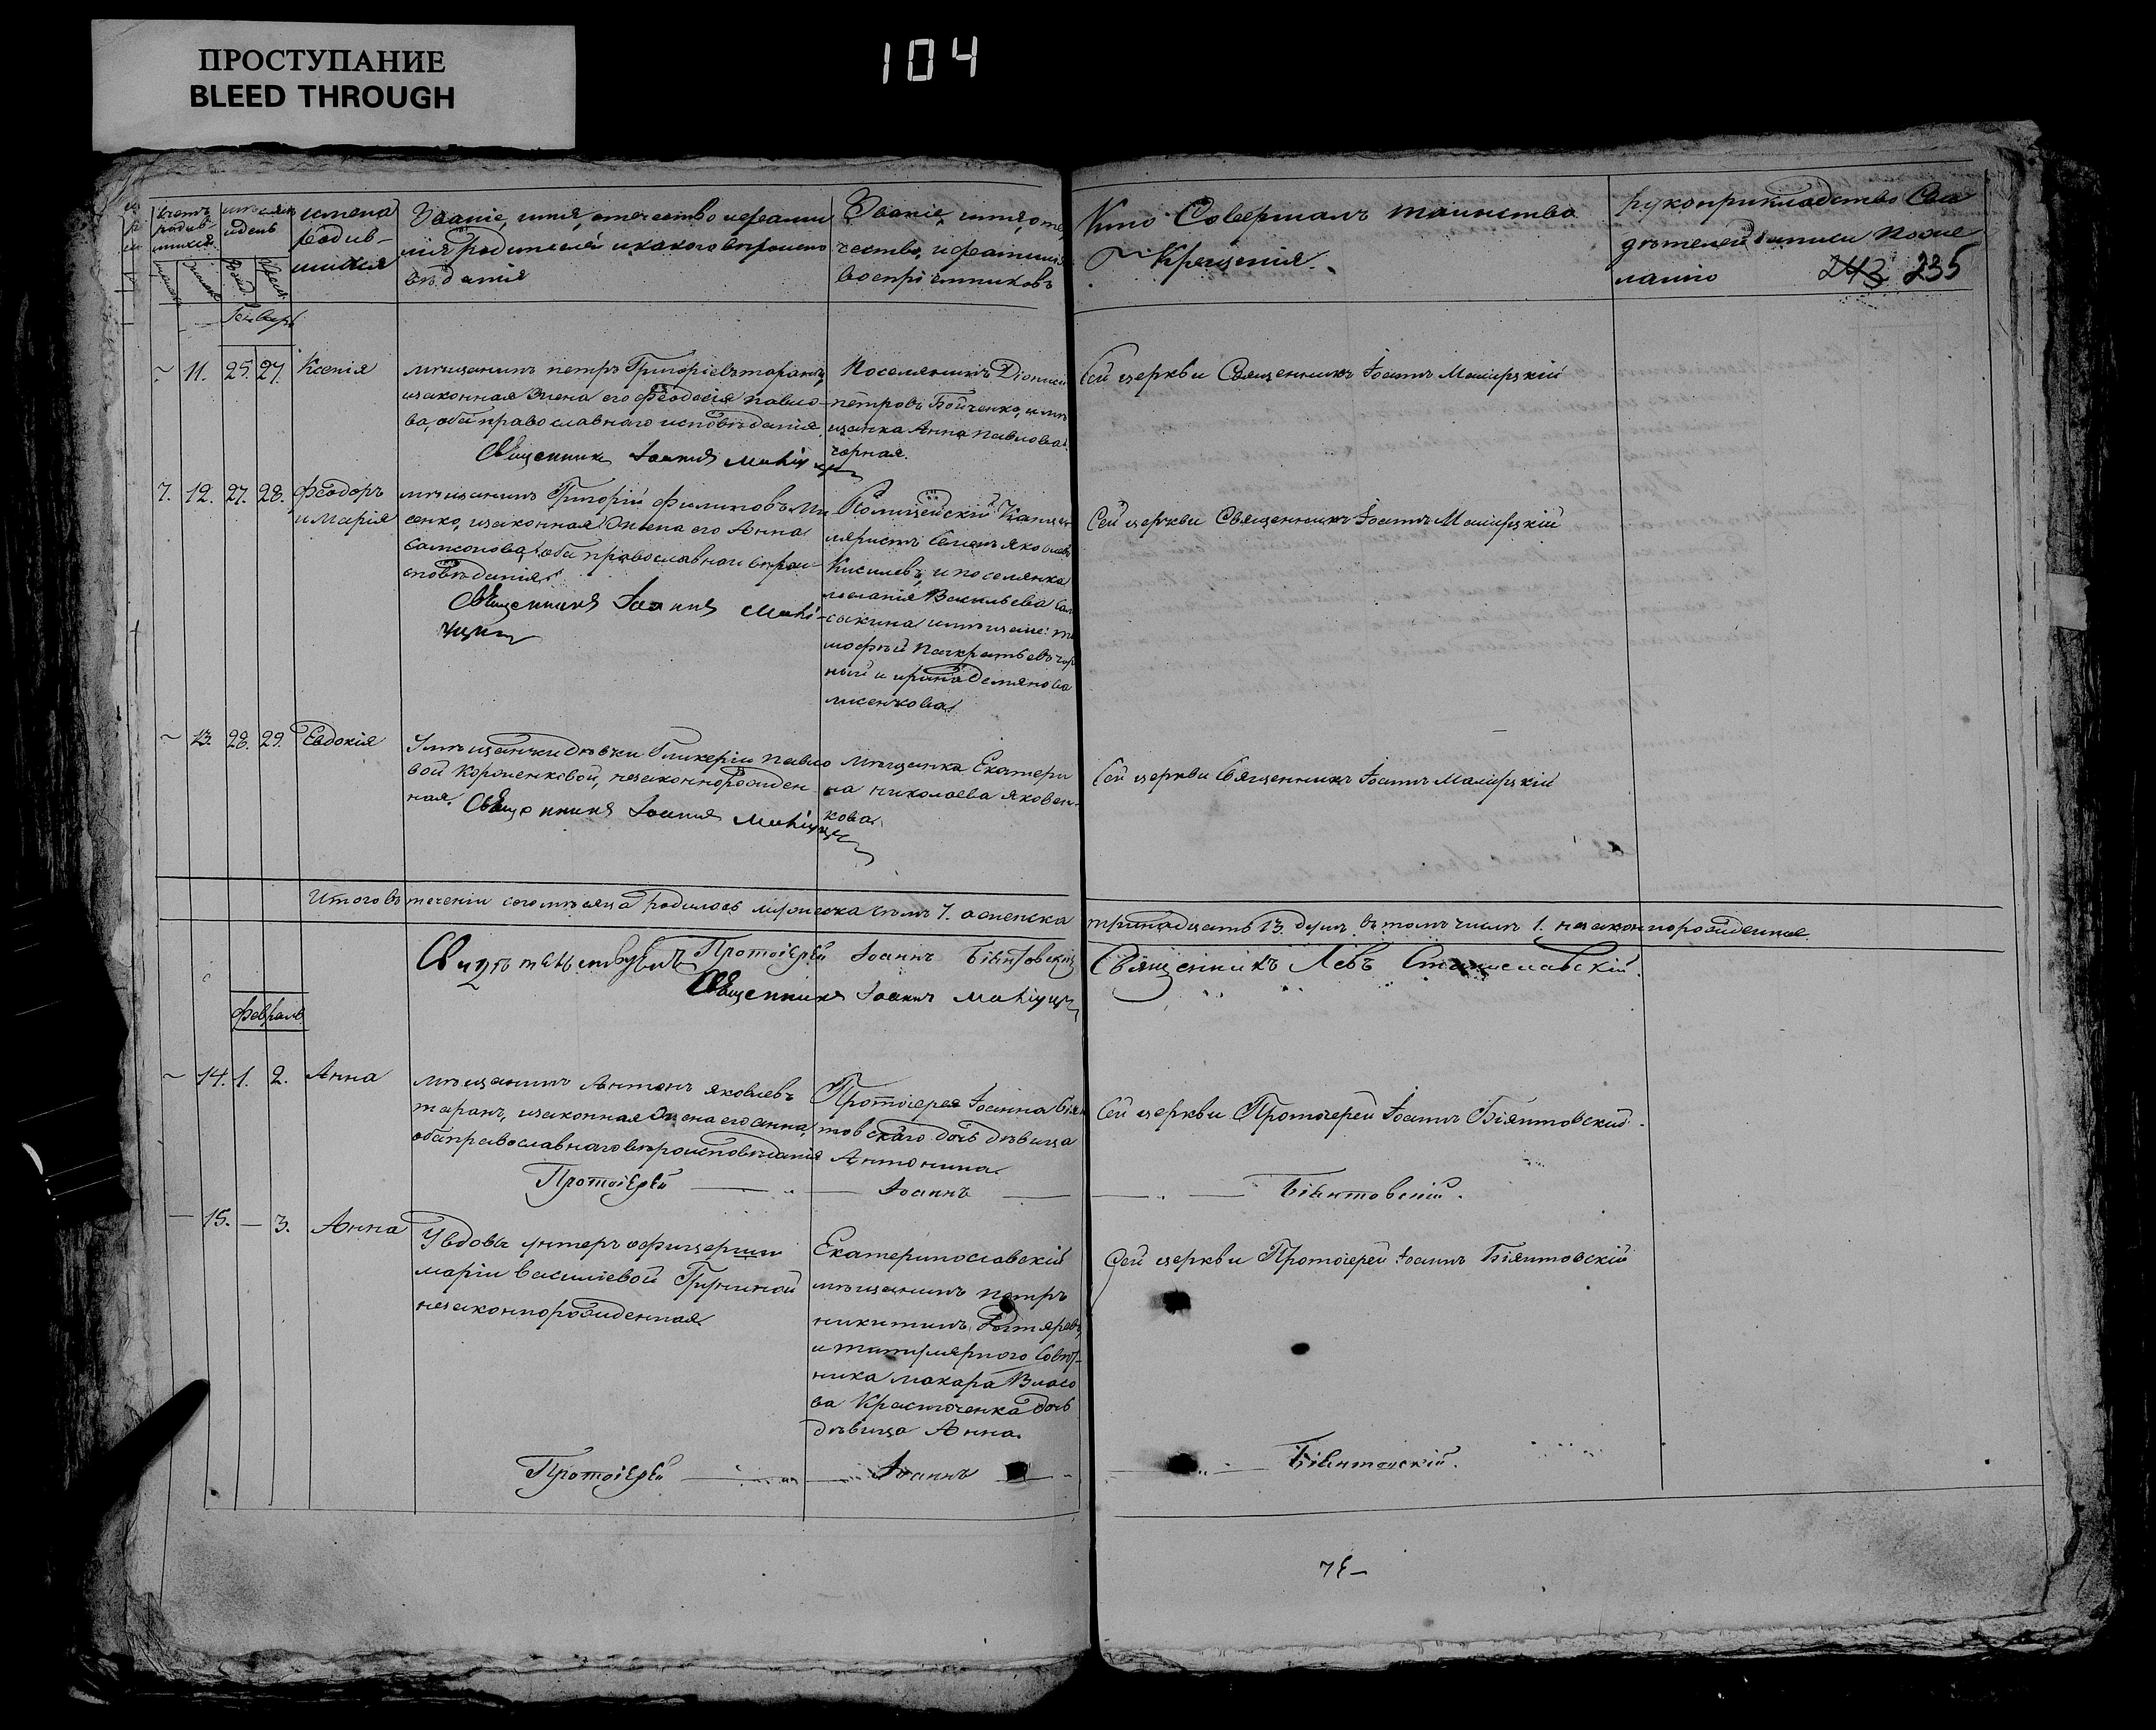 ПРОСТУПАНИЕ
BLEED THROUGH
104
имена
родив-
шихся
Званіе, имя, отечество и фами
лія родителей и какого вѣроиспо
вѣданія
Званіе, имя, оте
чество, и фамилія
воспріемниковъ
Кто Совершалъ таинство
Крещенія.
рукоприкладство Сви
дѣтелей записи по же
ланію
243 235
Генварь
11. 25. 27. Ксенія
мѣщанинъ петръ Григоріевъ таранъ,
и законная жена его Феодосія павло
ва, оба православнаго исповѣданія
Священникъ Іоаннъ
Поселянинъ Діонисій
петровъ Бойченко, и мѣ
щанка Анна павлова
чорная.
Сей церкви Священникъ Іоаннъ
7. 12. 27. 28. Феодоръ
и Марія
мѣщанинъ Григорій Филиповъ Ли
сенко, и законная жена его Анна
Самсонова, оба православнаго вѣрои-
сповѣданія
Священникъ Іоаннъ
Полицейскій Канце
ляристъ Семенъ Яковлевъ
Киселевъ, и поселянка
меланія Васильева
и мѣщане: ти
мофѣй Панкратьевъ чор
ный и ирина Демянова
лисенкова
Сей церкви Священникъ Іоаннъ
13. 28. 29. Евдокія
У мѣщанки дѣвки Гликеріи павло
вой Короленковой, незаконнорожден
ная.
Священникъ Іоаннъ
Мѣщанка Екатери
на николаева яковен-
кова
Сей церкви Священникъ Іоаннъ
Итого въ теченіи сего мѣсяца родилось мужеска семь 7. а женска
тринадцать 13. душъ въ томъ числѣ 1. незаконнорожденное
Протоіерей Іоаннъ Біянтовскій
Священникъ Левъ Станиславскій.
Священникъ Іоаннъ
Февраль
14. 1. 2. Анна
мѣщанинъ Антонъ яковлевъ
таранъ, и законная жена его анна,
оба православнаго вѣроисповѣданія
Протоіерея Іоанна Біян
товскаго дочь дѣвица
Антонина
Сей церкви Протоіерей Іоаннъ Біянтовскій.
Протоіерей — Іоаннъ — Біянтовскій.
15. — 3. Анна
У вдовы унтеръ офицерши
маріи василіевой
незаконнорожденная
Екатеринославскій
мѣщанинъ петръ
никитинъ
и титулярного Совѣт-
ника макара Власо
ва Красноченка дочь
дѣвица Анна.
Сей церкви Протоіерей Іоаннъ Біянтовскій
Протоіерей — Іоаннъ — Біянтовскій.